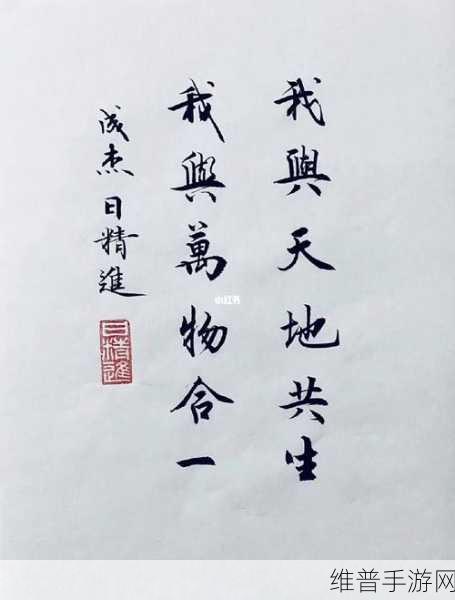 我與天地共生
我與萬物合一
成杰日精進
日精進
小红书
维普手游网